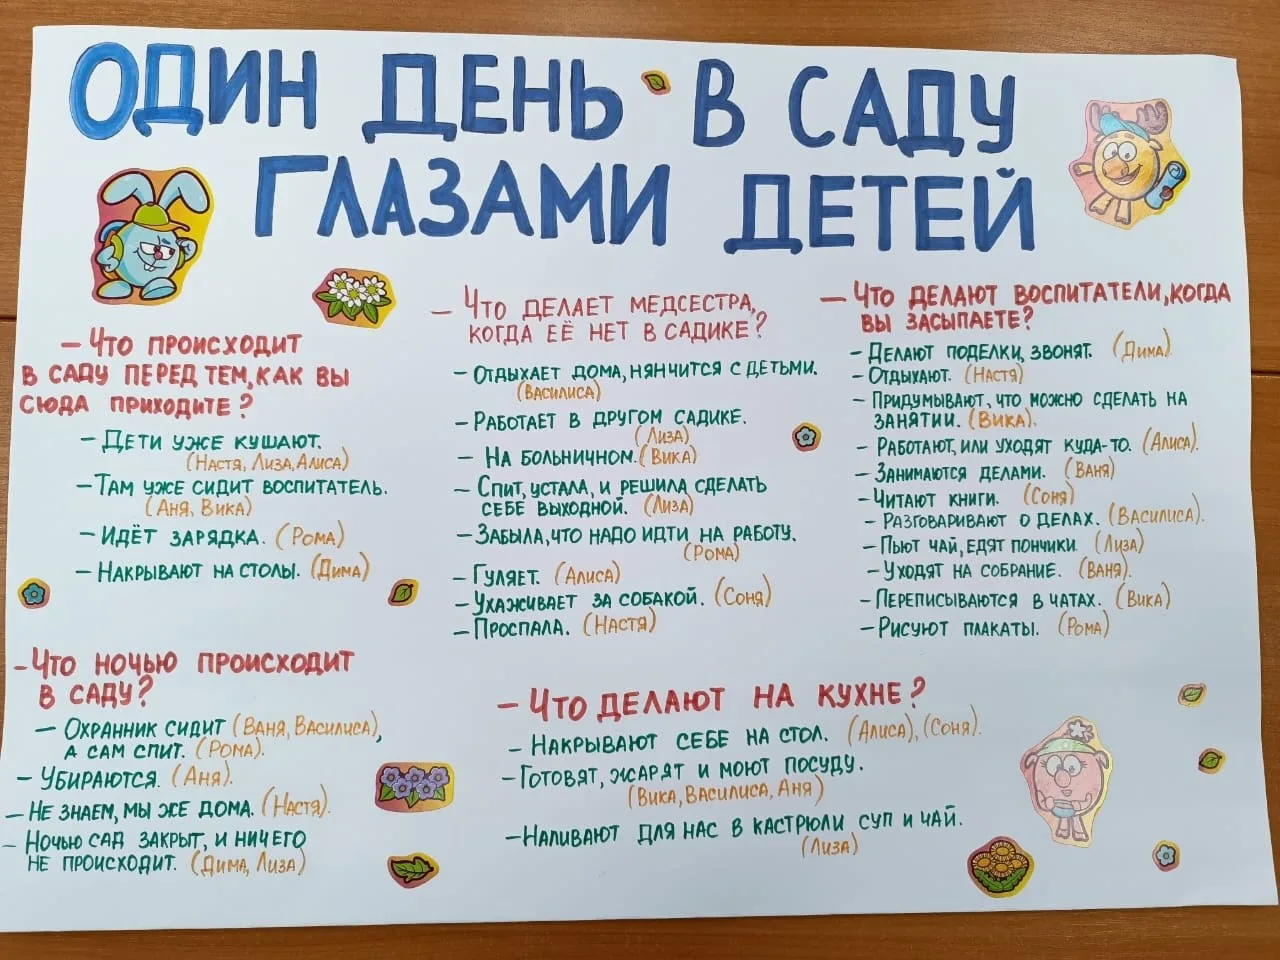 ОДИН ДЕНЬ В САДУ
ГЛАЗАМИ ДЕТЕЙ
— Что происходит
в саду перед тем, как вы
сюда приходите?
— Дети уже кушают.
(Настя, Лиза, Алиса)
— Там уже сидит воспитатель.
(Аня, Вика)
— Идёт зарядка. (Рома)
— Накрывают на столы. (Дима)
— Что ночью происходит
в саду?
— Охранник сидит (Ваня, Василиса),
а сам спит. (Рома).
— Убираются. (Аня).
— Не знаем, мы же дома. (Настя).
— Ночью сад закрыт, и ничего
не происходит. (Дима, Лиза)
— Что делает медсестра,
когда её нет в садике?
— Отдыхает дома, нянчится с детьми.
(Василиса)
— Работает в другом садике.
(Лиза)
— На больничном. (Вика)
— Спит, устала, и решила сделать
себе выходной. (Лиза)
— Забыла, что надо идти на работу.
(Рома)
— Гуляет. (Алиса)
— Ухаживает за собакой. (Соня)
— Проспала. (Настя)
— Что делают воспитатели, когда
вы засыпаете?
— Делают поделки, звонят. (Дима).
— Отдыхают. (Настя)
— Придумывают, что можно сделать на
занятии. (Вика).
— Работают, или уходят куда-то. (Алиса).
— Занимаются делами. (Ваня)
— Читают книги. (Соня)
— Разговаривают о делах. (Василиса).
— Пьют чай, едят пончики (Лиза)
— Уходят на собрание. (Ваня).
— Переписываются в чатах. (Вика)
— Рисуют плакаты. (Рома)
— Что делают на кухне?
— Накрывают себе на стол. (Алиса), (Соня).
— Готовят, жарят и моют посуду.
(Вика, Василиса, Аня)
— Наливают для нас в кастрюли суп и чай.
(Лиза)